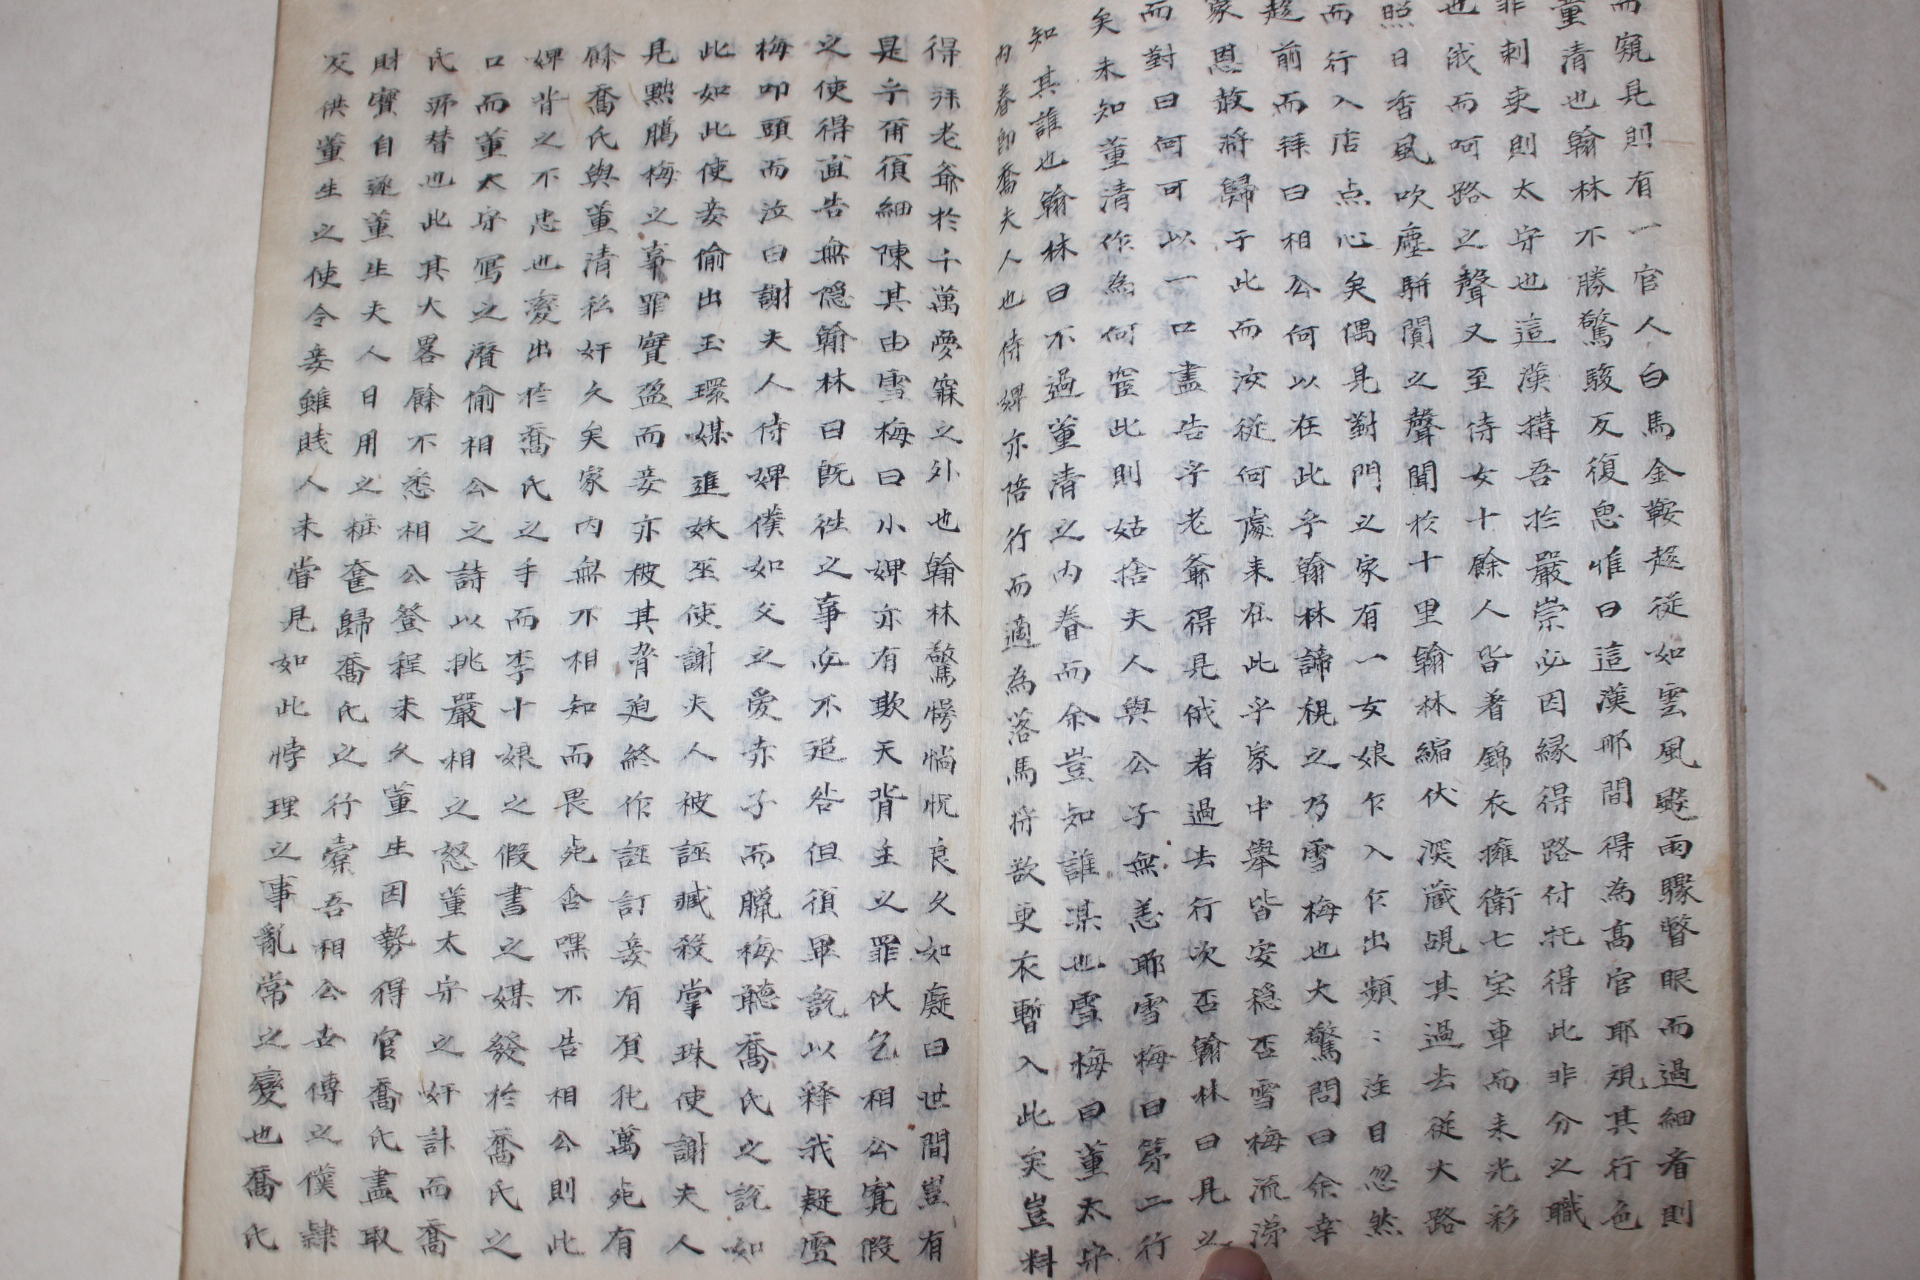 而窺見則有一官人白馬金鞍趍從如雲風颷雨驟瞥眼而過細看則
董清也翰林不勝驚駭反復思惟曰這漢那間得為髙官耶視其行色
非刺吏則太守也這漢搆吾於嚴崇必因緣得路付托得此非分之職
也俄而呵路之聲又至侍女十餘人皆著錦衣擁衛七宝車而来光彩
照日香風吹塵駢闐之聲聞於十里翰林縮伏深藏覘其過去従大路
而行入店点心矣偶見對門之家有一女娘乍入乍出頻〻注目忽然
趍前而拜曰相公何以在此乎翰林諦視之乃雪梅也大驚問曰余幸
蒙恩赦將歸于此而汝従何處来在此乎家中擧皆安穏否雪梅流涕
而對曰何可以一口盡告乎老爺得見俄者過去行次否翰林曰見之
矣未知董清作為何官此則姑捨夫人與公子無恙耶雪梅曰第二行
知其誰也翰林曰不過董清之内眷而余豈知誰某也雪梅曰董太守
内眷即喬夫人也侍婢亦陪行而適為落馬将欲更衣暫入此矣豈料
得拜老爺於千萬夢寐之外也翰林驚愕惝怳良久如癡曰世間豈有
是乎甭須細陳其由雪梅曰小婢亦有欺天背主之罪伏乞相公寛假
之使得直告無隠翰林曰既徃之事必不追咎但須畢說以释我疑雪
梅叩頭而泣曰謝夫人侍婢僕如父之愛赤子而臘梅聽喬氏之說如
此如此使妾偷出玉環媒進妖巫使謝夫人被誣臧殺掌珠使謝夫人
見黜臘梅之事罪實盈而妾亦被其脅迫終作誣訂妾有頁死萬死有
餘喬氏與董清私奸久矣家内無不相知而畏死含嘿不告相公則此
婢背之不忠也变出於喬氏之手而李十娘之假書之媒發於喬氏之
口而董太守寫之潛偷相公之詩以挑嚴相之怒董太守之奸計而喬
氏所替也此其大畧餘不悉相公登程未久董生因勢得官喬氏盡取
財寶自適董生夫人日用之粧奩歸喬氏之行橐吾相公世傳之僕隷
反供董生之使令妾雖賎人未嘗見如此悖理之事亂常之變也喬氏